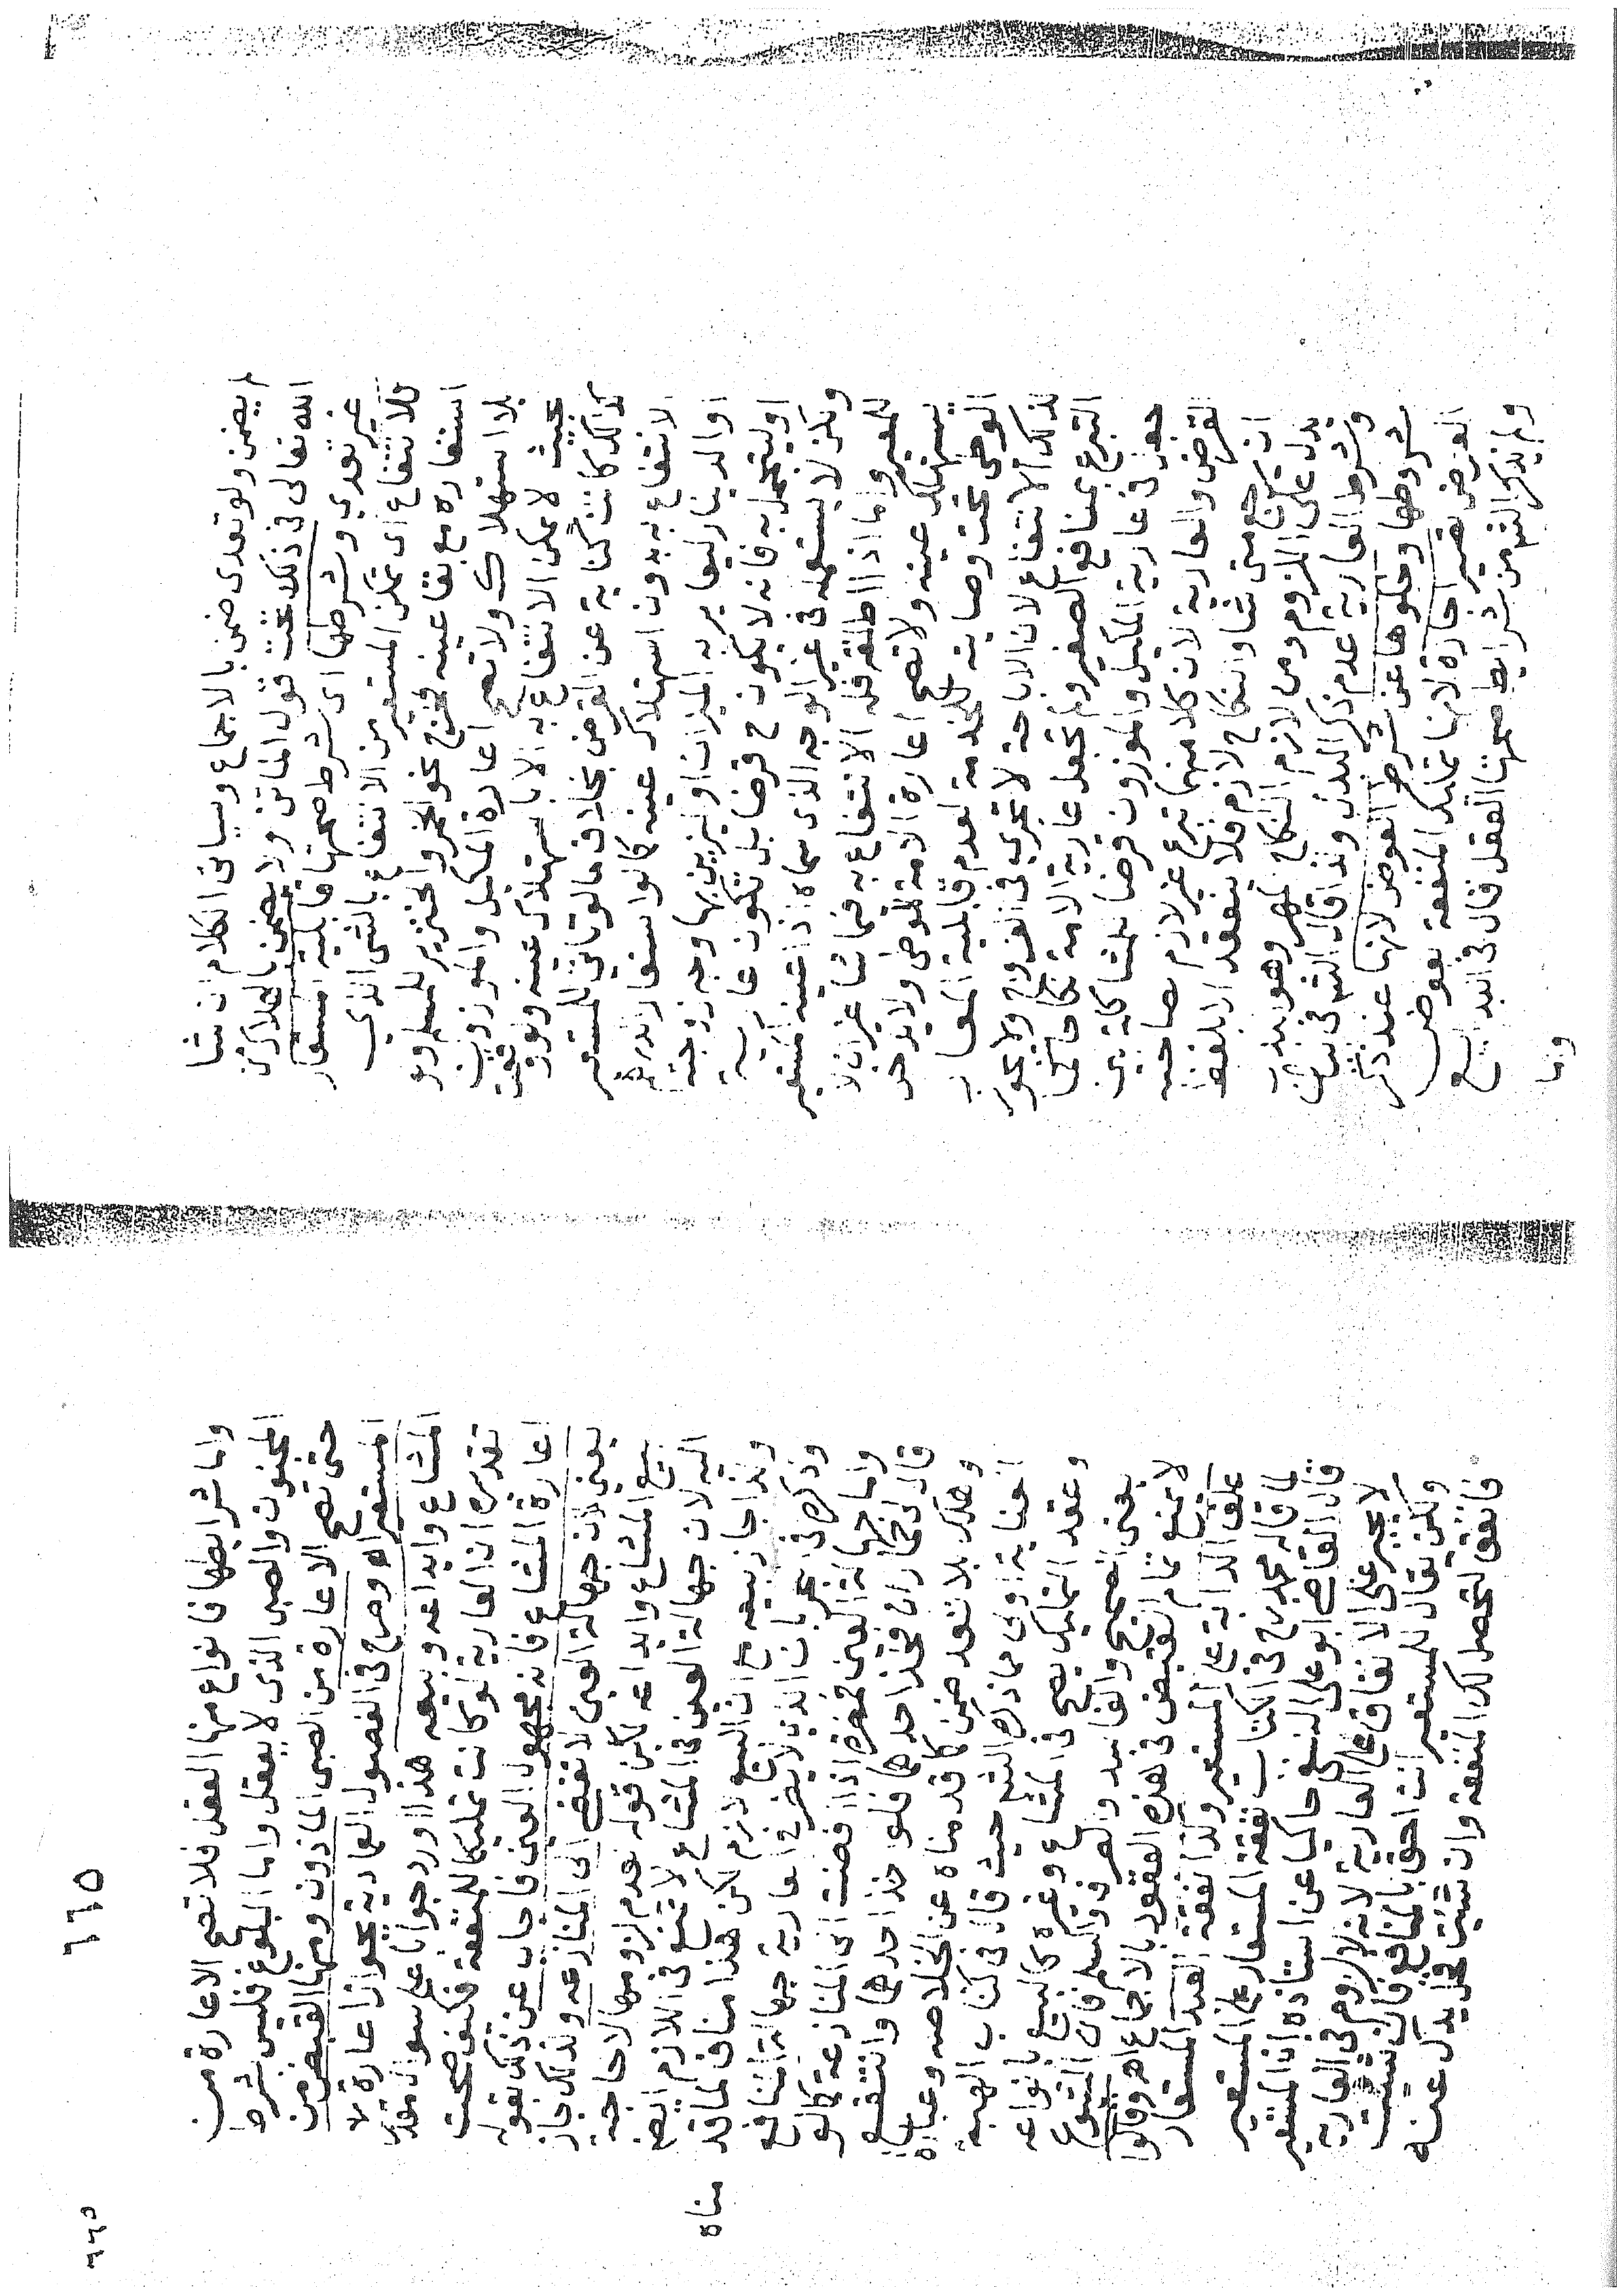 لم يضمن ولو تعدى ضمن بالاجماع وسياتى الكلام ان شا
الله تعالى فى ذلك تحت قول الماتن ولا يضمن بالهلاك من
غير تعدي وشرطها اى شرط صحتها قابلية المستعار
للانتفاع اى تمكن المستعير من الانتفاع بالشى الذى
استعاره مع بقا عينه فخرج نحو الخمر والخنزير للمسلم و
بلا استهلاك ولا تصح اعارة المكيل والموزون
بحيث لا يمكن الانتفاع به الا باستهلاك عينه ولو وقعت
كذلك كانت كناية عن القرض بخلاف ما لو تاتي للمستعير
الانتفاع به بدون استهلاك عينه كما لو استعار الدرهم
او الدينار ليعاير به الميزان او ليزين بها وجه زوجته
او ليتجمل به فانه لا يكون ح قرضا بل تكون عارية
ولكن لا يستعمله فى غير الوجه الذى سماه اذا المستعير
للمعير واما اذا اطلقه فله الانتفاع به فيما شا غير ان لا
يستهلك عينه ولا تصح اعارة الامة للوطى ولا يدخل
الوطى تحت وصايته للخدمة لعدم قابلية المعار
لذلك الانتفاع لان الاباحة لا تجرى فى الفروج ولا يجوز
التبرع بمنافع الصغير ولم تجعل عارية الامة نكاحا كما
جعل فى عارية المكيل والموزون قرضا للمشاكلة بين
القرض والعارية لان كلا منهما تبرع غير لازم لصاحبه
ان يرجع متى شا والنكاح لازم فلا ينعقد الا بلفظ
يدل على اللزوم ومن لازم النكاح المهر وهو بدل
وشرط العارية عدم ذكر البدل ولذا قال الش فى بيان
شروطها وخلوها عن شرط العوض لانها عند ذكر
العوض تصير اجارة لانها تمليك المنفعة بعوض
ولم يذكر الش من شرايط صحتها العقل قال فى البدايع
واما
٦٦٥
٦٦٥
واما شرايطها فانواع منها العقل فلا تصح الاعارة من
المجنون والصبى الذى لا يعقل واما البلوغ فليس شرط
حتى تصح الاعارة من الصبى الماذون ومنها القبض من
المستعير اه وصرح فى الفصول العمادية بجواز اعارة لا
المشاع وايداعه وبيعه هذا اورد جوابا عن سوال مقدر
تقديره ان العارية لو كانت تمليكا للمنفعة فكيف صحت
اعارة المشاع فانه مجهول العين فاجاب عن ذلك بقوله
يعنى لان جهالة العين لا تفضى الى المنازعه ولذلك جاز
بيع المشاع وايداعه لكن قوله لعدم لزومها لا حاجة
اليه لان جهالة العين فى المشاع لا تمنع فى اللازم ايضا
ولذا جاز بيعه مع ان البيع لازم لكن هذا مناف لما قد
مناه
وذكره فى البحر بان الذى لا يضر فى العارية جهالة المنافع
واما جهالة العين فمضرة اذا افضت الى المنازعة كما لو
قال اعرتك حمارا ان فخذ احدهما فلو خذ احدهما وانتفع
وهلك بلا تعد ضمن كما قدمناه عن الخلاصه وعبارة
العناية اولى مما ذكره الش حيث قال فى كتاب الهبة
وعقد التمليك يصح فى المشاع وغيره كالبيع بانواعه
يعنى الصحيح والفاسد والصرف والسلم فان الشيوع
لا يمنع تمام القبض فى هذه العقود بالاجماع اه وقالوا
علف الدابة على المستعير وكذا نفقة العبد المستعار
لما قاله محمد رح فى الكتاب نفقة المستعار على المستعير
قال القاضى ابو على النسفى حاكيا عن استاذه ان المستعير
لا يجبر على الانفاق على العارية لانه لا لزوم فى العارية
ولكن يقال للمستعير انت احق بالمنافع فان شئت
فانفق لتحصل لك المنفعة وان شئت فخل يدك عنه